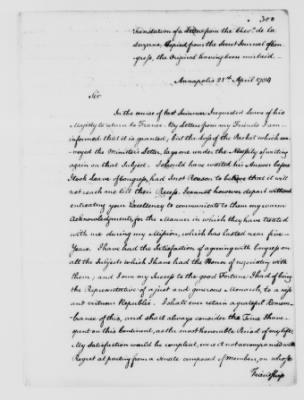 Translation of a Letter from the Chevr. de la
Luzerne, Copied from the Secret Journal of Con-
gress, the Original having been mislaid—
Annapolis 21st April 1784
Sir
In the course of last Summer I requested Leave of his
Majesty to return to France. My Letters from my Friends I am
informed that it is granted, but the Loss of the Packet which con-
veyed the Minister's Letter, lays me under the Necessity of writing
again on that Subject. I should have waited his Answer before
I took Leave of Congress, had I not Reason to believe that it will
not reach me till their Recess. I cannot however depart without
entreating your Excellency to communicate to them my warm
Acknowledgments for the Manner in which they have treated
with me during my Mission, which has lasted near five
Years. I have had the Satisfaction of agreeing with Congress on
all the Subjects which I have had the Honor of negotiating with
them; and I owe my Success to the good Fortune I had of being
the Representative of a just and generous Monarch, to a wise
and virtuous Republic. I shall ever retain a grateful Remem-
brance of this, and shall always consider the Time I have
spent on this Continent, as the most honorable Period of my life.
My Satisfaction would be compleat, was it not accompanied with
Regret at parting from a Senate composed of Members, on whose
Friendship